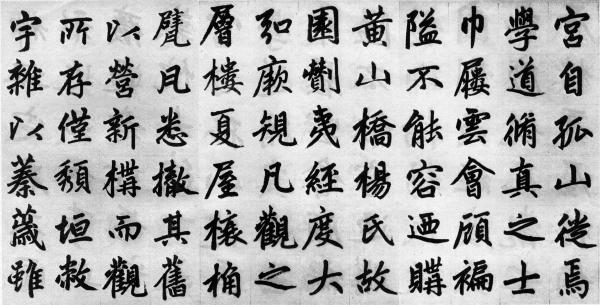 宮自孤山徙焉
學道脩真之士
巾屨雲會顧褊
隘不能容迺購
黃山橋楊氏故
園劗夷經度大
弘厥規凡觀之
層樓夏屋榱桷
甓瓦悉撤其舊
以營新構而觀
所存僅頹垣敝
宇雜以蓁薉雖